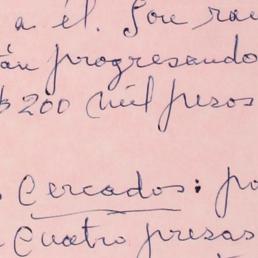 a él. Son ra
án progresando
$ 200 mil pesos
Cercados: po
cuatro presas